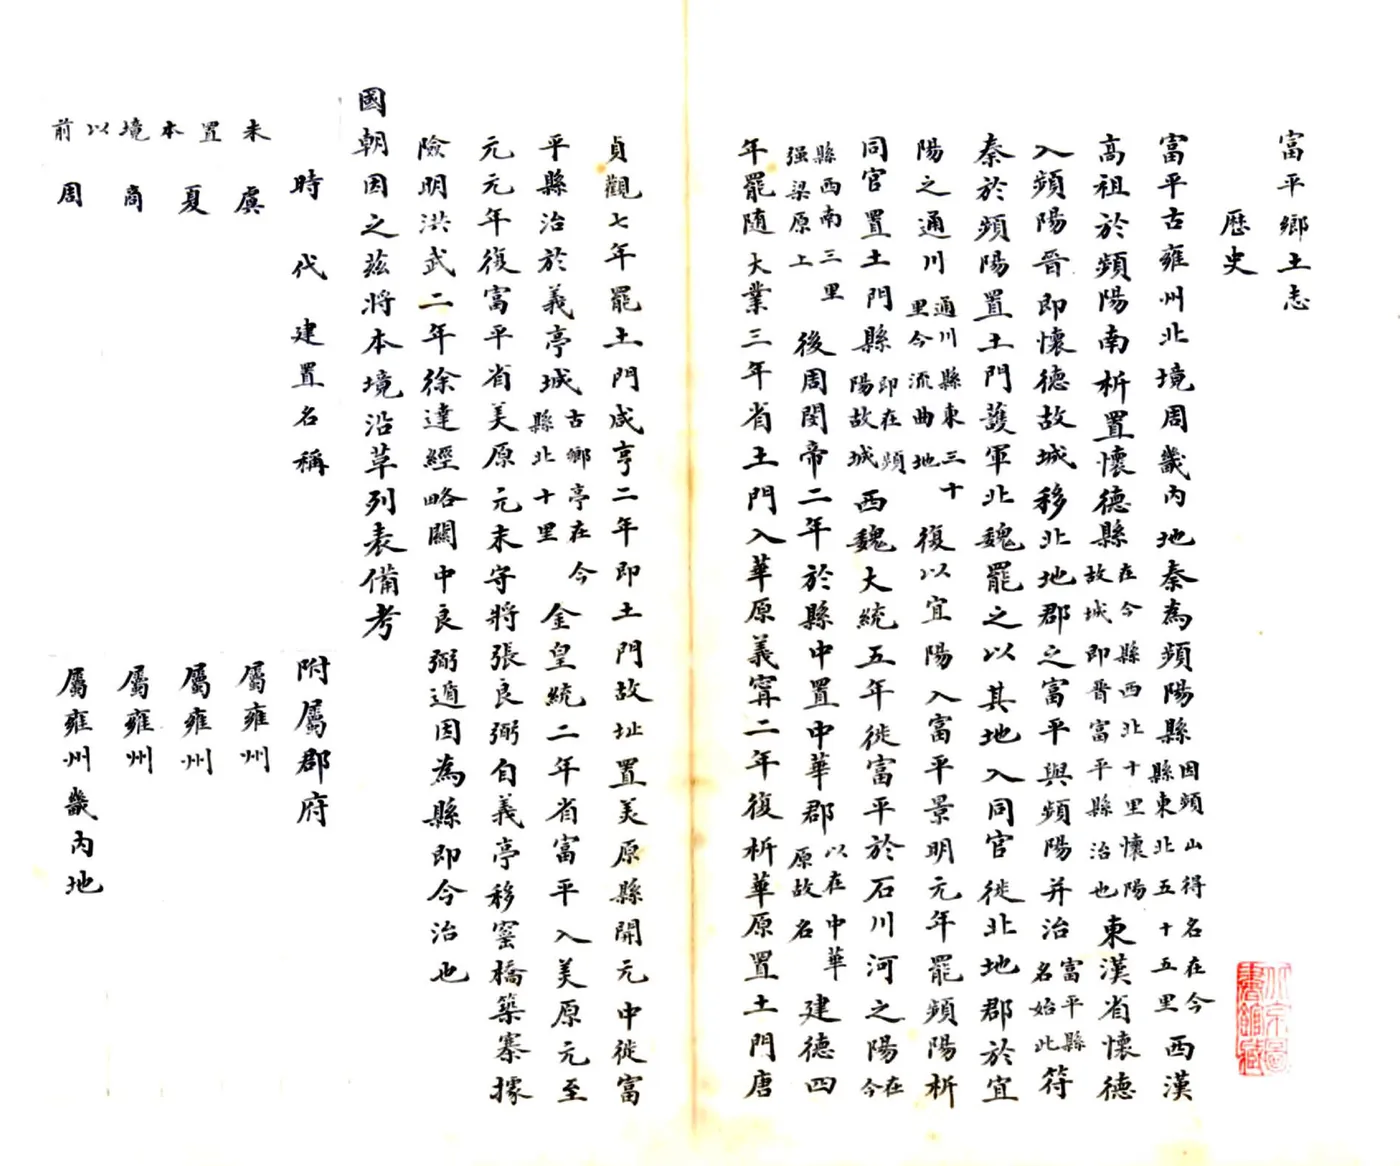 富平鄉土志
歷史
富平古雍州北境周畿內地秦為頻陽縣因頻山得名在今縣東北五十五里西漢
高祖於頻陽南析置懷德縣在今縣西北十里懷陽故城即晋富平縣治也東漢省懷德
入頻陽晋即懷德故城移北地郡之富平與頻陽并治富平縣名始此符
秦於頻陽置土門護軍北魏罷之以其地入同官徙北地郡於宜
陽之通川通川縣東三十里今流曲地復以宜陽入富平景明元年罷頻陽析
同官置土門縣即在頻陽故城西魏大統五年徙富平於石川河之陽在今
縣西南三里强梁原上後周閔帝二年於縣中置中華郡以在中華原故名建德四
年罷隨大業三年省土門入華原義寧二年復析華原置土門唐
貞觀七年罷土門咸亨二年即土門故址置美原縣開元中徙富
平縣治於義亭城古鄉亭在今縣北十里金皇統二年省富平入美原元至
元元年復富平省美原元末守將張良弼自義亭移窰橋築寨據
險明洪武二年徐達經略關中良弼遁因為縣即今治也
國朝因之茲將本境沿革列表備考
時代 建置名稱 附屬郡府
未置本境以前
虞 屬雍州
夏 屬雍州
商 屬雍州
周 屬雍州畿內地
北京圖書館藏